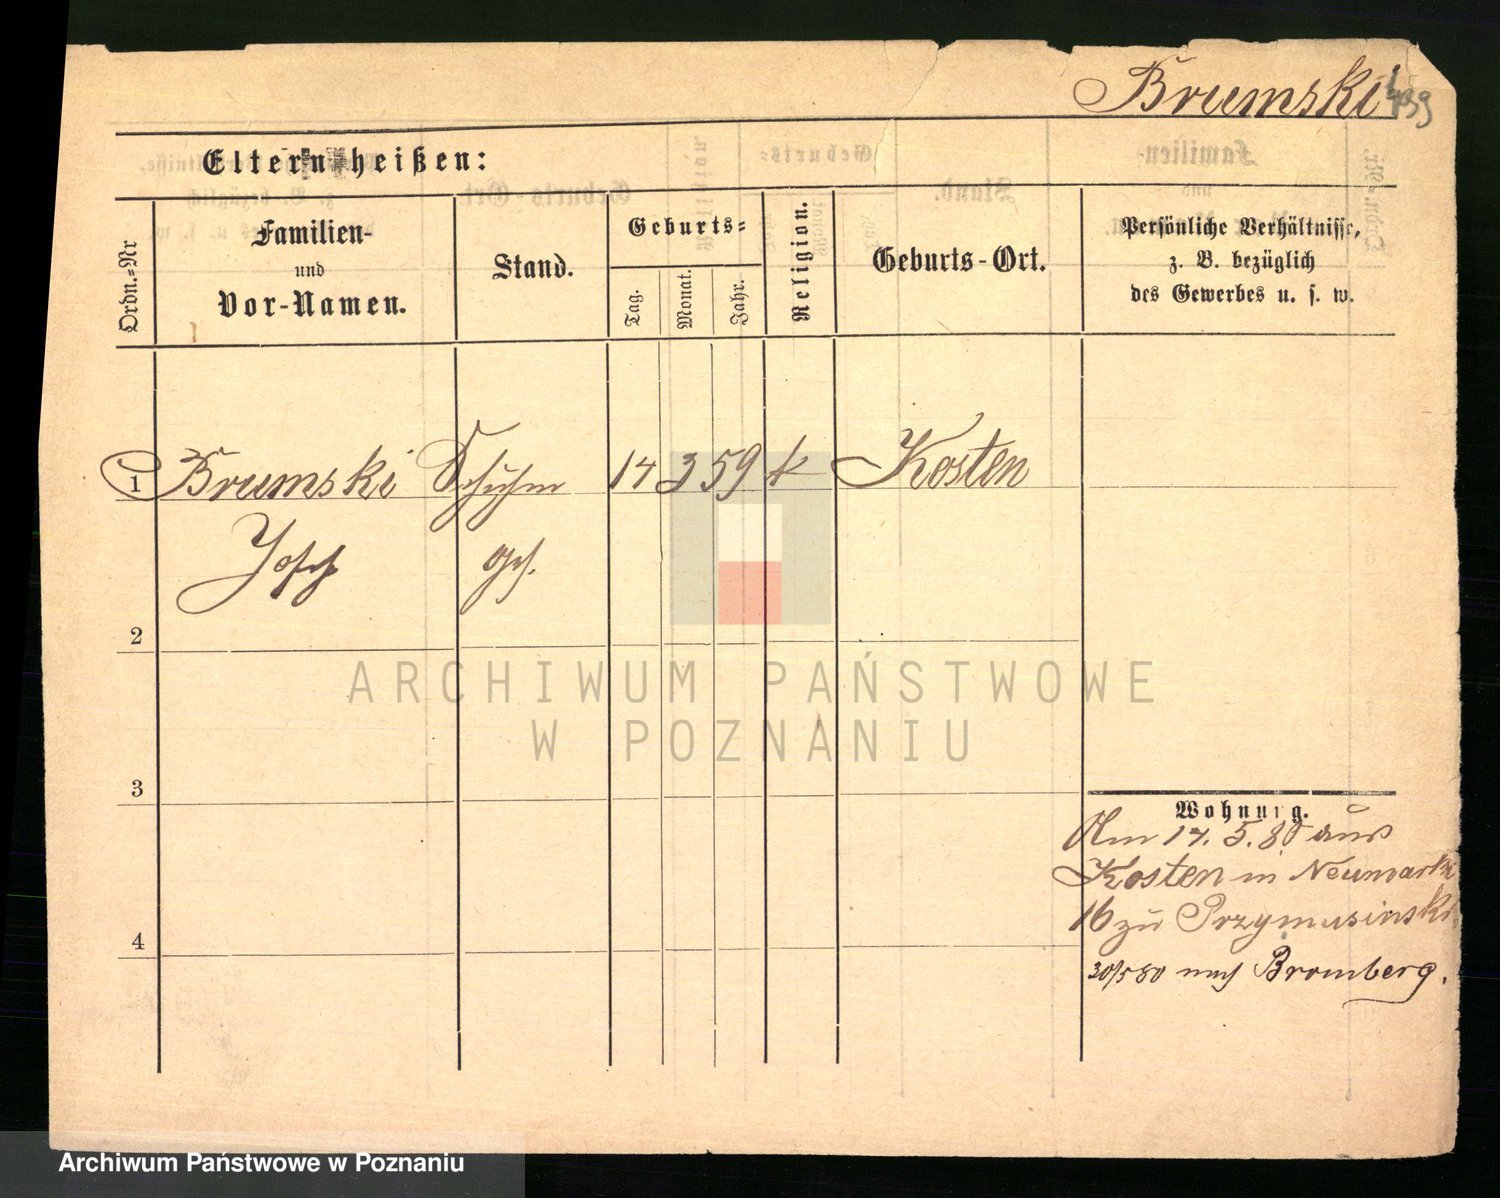 Brumski
Eltern heißen:
Ordn.=Nr
Familien-
und
Vor-Namen.
Stand.
Geburts=
Tag.
Monat.
Jahr.
Religion.
Geburts-Ort.
Persönliche Verhältnisse,
z. B. bezüglich
des Gewerbes u. s. w.
1 Brumski Schuhm 14 3 59 k Kosten
Josef ges.
2
3
4
Wohnung.
Am 14. 5. 80 aus
Kosten in Neumarkt
16 zu Przymusinski
30/5 80 nach Bromberg.
ARCHIWUM PAŃSTWOWE
W POZNANIU
Archiwum Państwowe w Poznaniu